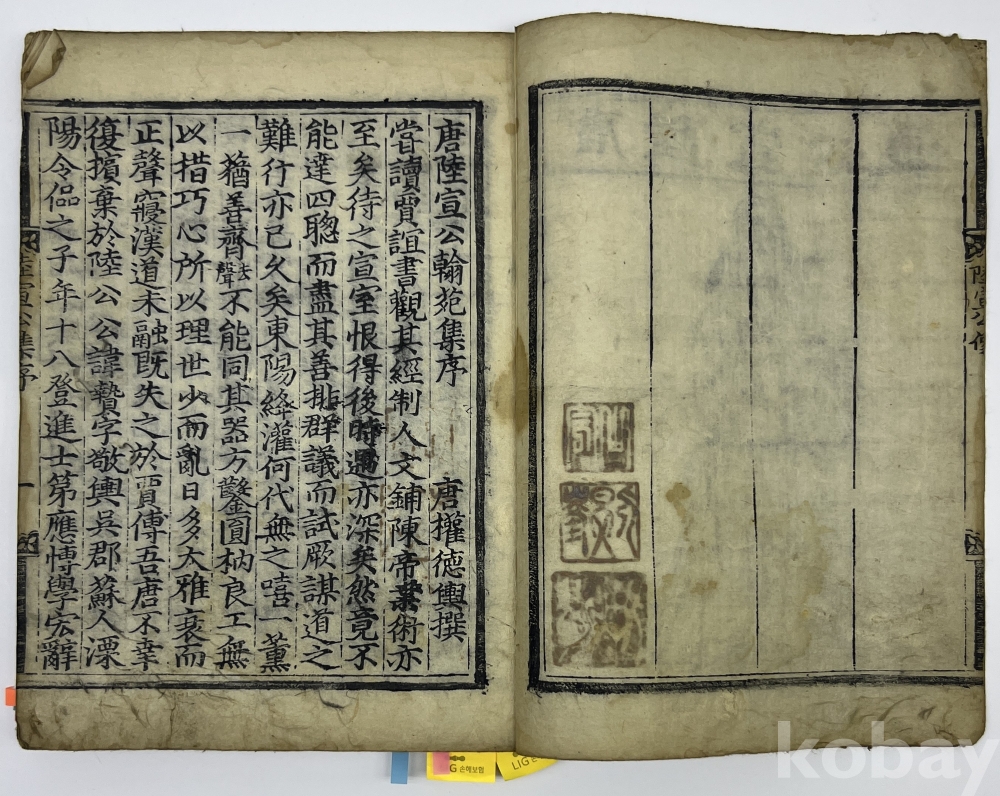 陸宣公
唐陸宣公翰苑集序 唐權德輿撰
嘗讀賈誼書觀其經制人文鋪陳帝業術亦
至矣待之宣室恨得後時遇亦深矣然竟不
能達四聰而盡其善排群議而試厥謀道之
難行亦已久矣東陽絳灌何代無之嘻一薰
一蕕善齊去聲不能同其器方鑿圓枘良工無
以措巧心所以理世少而亂日多大雅衰而
正聲寢漢道未融既失之於賈傅吾唐不幸
復擯棄於陸公公諱贄字敬輿吳郡蘇人溧
陽令偘之子年十八登進士第應博學宏辭
陸宣公集序 一
G 손해보험
LIG
kobay